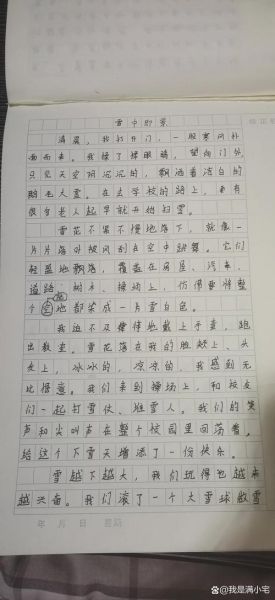 雪中即景
清晨，我打开门，一股寒风扑
面而来。我揉了揉眼睛，望向门外，
只见天空阴沉沉的，飘洒着洁白的
鹅毛大雪。在去学校的路上，也有
很多老人起早就开始扫雪。
雪花不紧不慢地落下，就像一
片片落叶被风刮在空中跳舞。它们
轻盈地飘落，覆盖在房屋、汽车、
道路、树木、操场上，仿佛要将整
个大地都染成一片雪白色。
我迫不及待地戴上手套，跑
出教室。雪花落在我的脸颊上、头
发上，冰冰的，凉凉的，我感到无
比惬意。我们来到操场上，和校友
们一起打雪仗、堆雪人。我们的笑
声和尖叫声在整个校园里回荡着，
给这个下雪天增添了一份快乐。
雪越下越大，我们玩得也越来
越兴奋。我们滚了一个大雪球做雪
年 月 日 星期
@我是满小宅